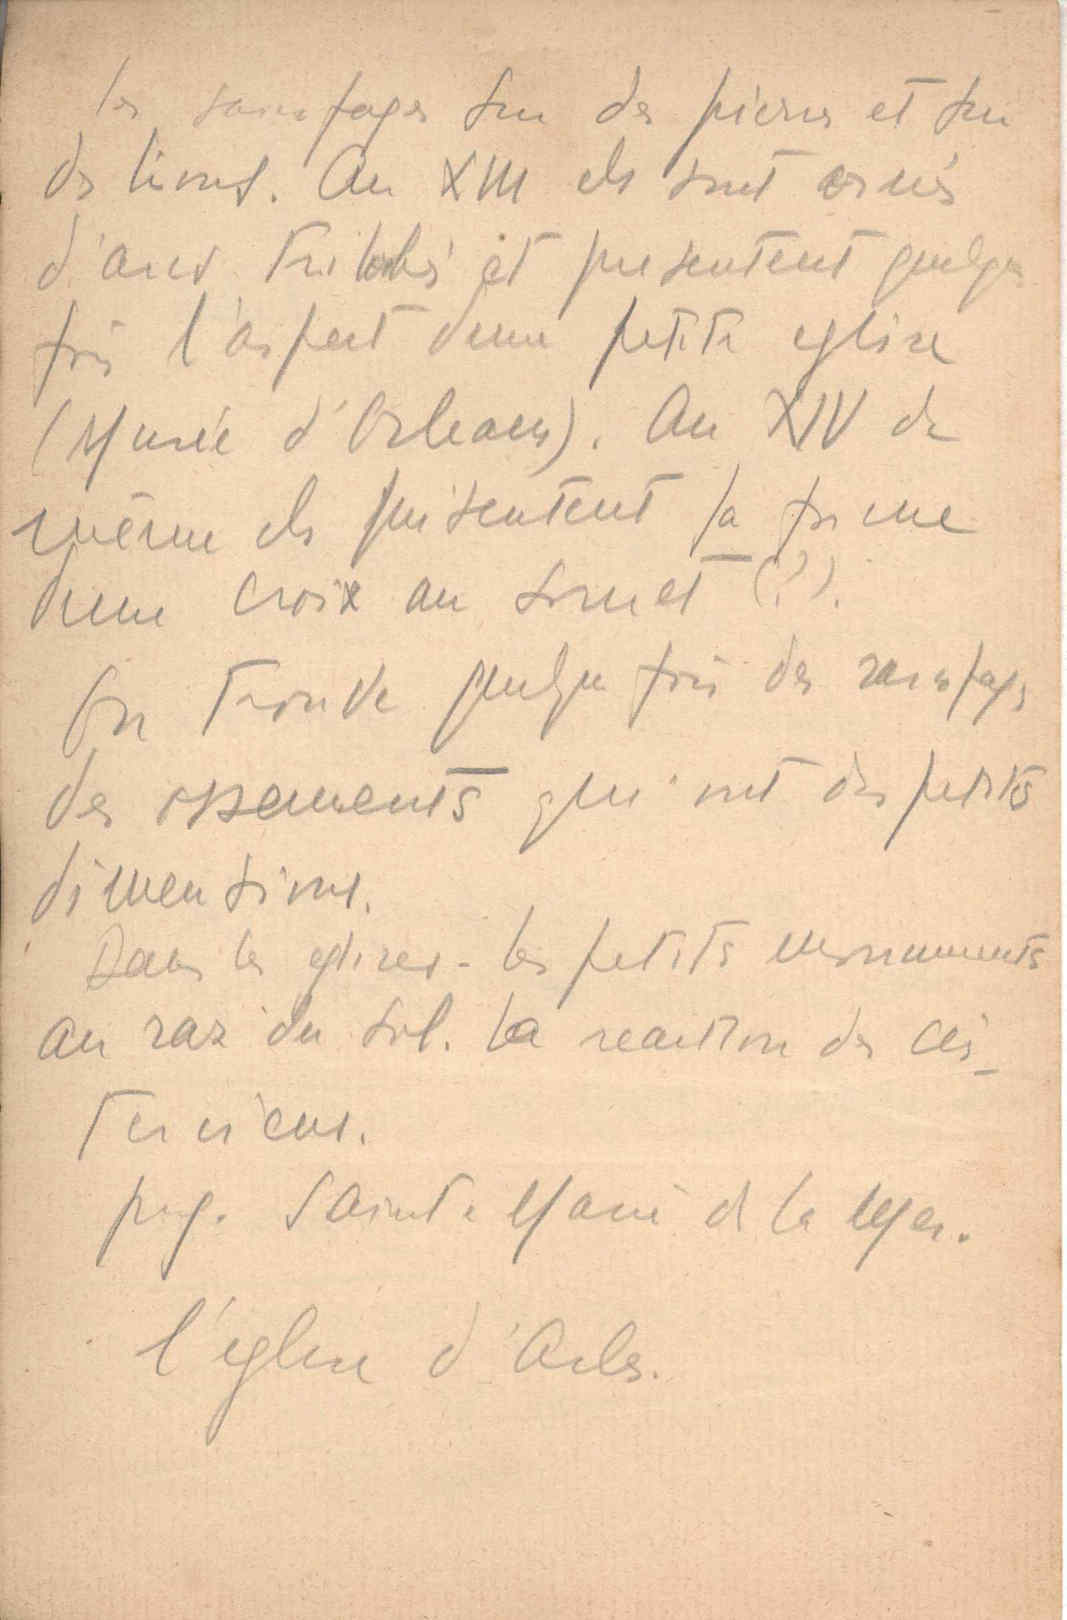 les sarcofages sur des pierres et sur
des lions. Au XIII ils sont ornés
d'arcs trilobés et presentent quelque
fois l'aspect d'une petite eglise
(Musée d'Orleans). Au XIV de
même ils présentent la forme
d'une croix au somet (?).
On trouve quelque fois des sarcofages
des ossements qui ont des petites
dimensions.
Dans les eglises - les petits monuments
au raz du sol. La reaction des Cis-
terciens.
prog. Sainte Marie de la Mer.
l'eglise d'Arles.